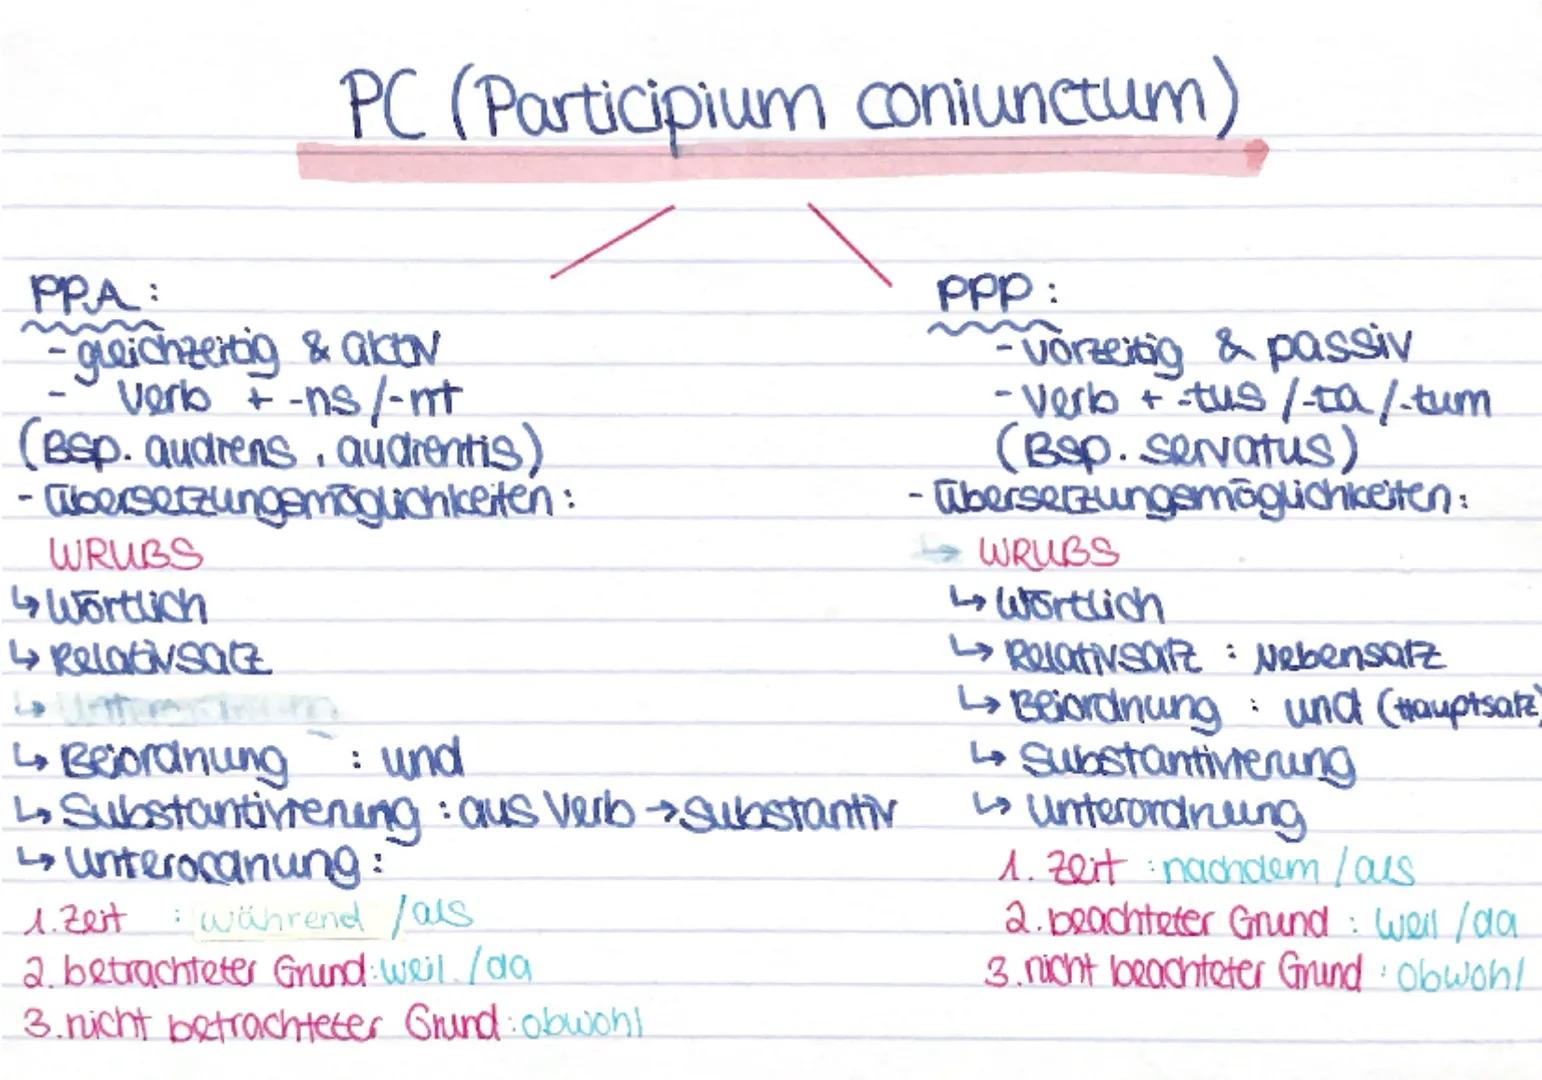 PC (Participium coniunctum)
PPA:
- gleichzeitig & aktiv
- Verb + -ns/-nt
(Bsp. audiens, audientis)
- Übersetzungsmöglichkeiten:
WRUBS
↳ Wörtlich
↳ Relativsatz
↳ Beiordnung : und
↳ Substantivierung : aus Verb → Substantiv
↳ Unterordnung:
1. Zeit : während / als
2. betrachteter Grund: weil / da
3. nicht betrachteter Grund: obwohl
PPP:
- vorzeitig & passiv
- Verb + -tus /-ta /-tum
(Bsp. servatus)
- Übersetzungsmöglichkeiten:
↳ WRUBS
↳ Wörtlich
↳ Relativsatz : Nebensatz
↳ Beiordnung : und (Hauptsatz)
↳ Substantivierung
↳ Unterordnung
1. Zeit : nachdem / als
2. beachteter Grund : weil / da
3. nicht beachteter Grund : obwohl